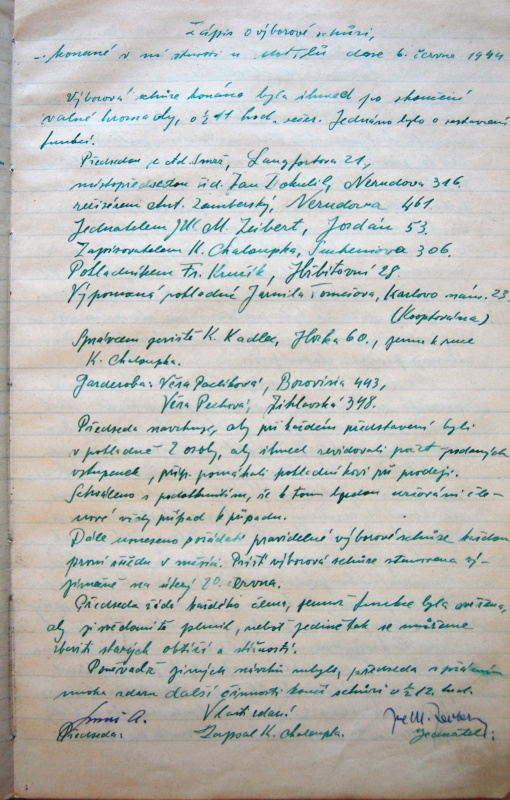 Zápis o výborové schůzi,
konané v místnosti u dne 6. června 1944
Výborová schůze konána byla ihned po skončení
valné hromady, o ½ 11 hod. večer. Jednáno bylo o sestavení
funkcí.
Předsedou je Ad. Smrž, Langfortova 21,
místopředsedou Jan Dokulil, Nerudova 316.
režisérem Ant. Zamberský, Nerudova 461.
Jednatelem M. Zeibert, Jordán 53.
Zapisovatelem K. Chaloupka, 306.
Pokladníkem Fr. Hřbitovní 28.
Výpomocná pokladní Jarmila Tomešova, Karlovo nám. 23.
(Kooptována)
Správcem jeviště K. Kadlec, Horka 60., jemu k ruce
K. Chaloupka.
Garderoba: Věra Pavlíková, Borovinka 443,
Věra Pechová, Jihlavská 348.
Předseda navrhuje, aby při každém představení byli
v pokladně 2 osoby, aby ihned revidovali počet prodaných
vstupenek, příp. pomáhali pokladníkovi při prodeji.
Schváleno s podotknutím, že k tomu budou určováni čle-
nové vždy případ k případu.
Dále usneseno pořádati pravidelné výborové schůze každou
první středu v měsíci. Příští výborová schůze stanovena vý-
jimečně na úterý 20. června.
Předseda žádá každého člena, jemuž funkce byla svěřena,
aby ji svědomitě plnil, neboť jedině tak se můžeme
zbaviti starých obtíží a stížností.
Poněvadž jiných návrhů nebylo, předseda s přáním
mnoho zdaru další činnosti končí schůzi v ½ 12. hod.
Smrž A. Vlasti zdar!
Předseda: Zapsal K. Chaloupka. Jednatel: